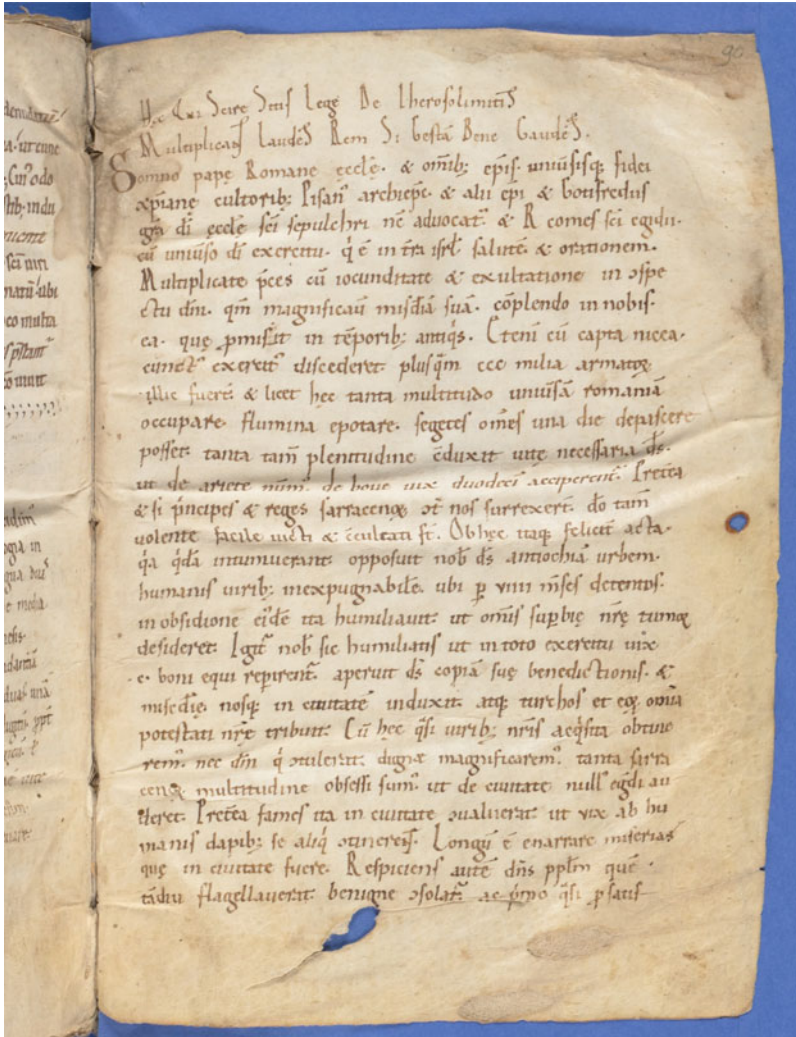 90
Hęc Qui Scire Sitis Lege De Iherosolimitis
Multiplicans Laudes Rem Si Gestā Bene Gaudes.
Somno papę Romane ęcclę. & omīb; epīs. uniūsisq; fidei
xp̄ianę cultorib; Pisan᾿ archiepc̄. & alii epī & Gotifredus
grā dī ęcclę scī sepulchri nc̄ advocat᾿. & R comes scī egidii.
cū uniūso dī exercitu. q̇ ē in t̄ra isrl̄. salutē. & orationem.
Multiplicate p̄ces cū iocunditate & exultatione in ɔspe
ctu dn̄i. qm̄ magnificauı̄t mis̄dīā suā. cōplendo in nobis.
ea. quę ꝓmisit in tēporib; antiq̇s. Eteni cū capta nicea.
cunct᾿ exercit᾿ discederet᾿ plusq̄m ccc milia armatoꝝ
illic fuert̄. & licet hęc tanta multitudo uniūsā romaniā
occupare. flumina epotare. segetes om̄es una die depascere
posset᾿ tanta tam̄ plenitudine ɔ̄duxit uitę necessaria ds̄.
ut de ariete num̄m᾿. de boue uix duodeci acciperent᾿. Pret̄ea
& si p̄ncipes & reges sarracenoꝝ ɔt᾿ nos surrexert̄. dō tam̄
uolente facile uicti & ɔculcati st̄. Ob hęc itaq; felicit᾿ acta.
q̇a q̇dā intumuerant᾿ opposuit nob᾿ ds̄ antiochiā urbem.
humanis uirib; inexpugnabilē. ubi ꝑ uiiii m̄ses detentos.
in obsidione ei᾿dē ita humiliauit᾿ ut omīs suꝑbię nr̄ę tumoꝝ
desideret. Igit᾿ nob᾿ sic humiliatis ut in toto exercitu uix
.c. boni equi repirent᾿. aperuit ds̄ copiā suę benedictionis. &
mis̄edīę. nosq; in ciuitatē induxit. atq; turchos et eoꝝ om̄ia
potestati nr̄ę tribuit᾿. Cū hęc q̇si uirib; nr̄is acq̇sita obtine
rem᾿. nec dn̄m q̇ ɔtulerat᾿ digne magnificarem᾿. tanta sarra
cenoꝝ multitudine obsessi sum᾿. ut de ciuitate null᾿ eġdi au
deret. Pret̄ea fames ita in ciuitate ɔualuerat᾿ ut uix ab hu
manis dapib; se aliq̇ ɔtinerent. Longū ē enarrare miserias
quę in ciuitate fuere. Respiciens autē dn̄s pp̄lm quē
tādiu flagellauerat᾿ benigne ɔsolat᾿. ac p̄mo q̇si ꝓ satis